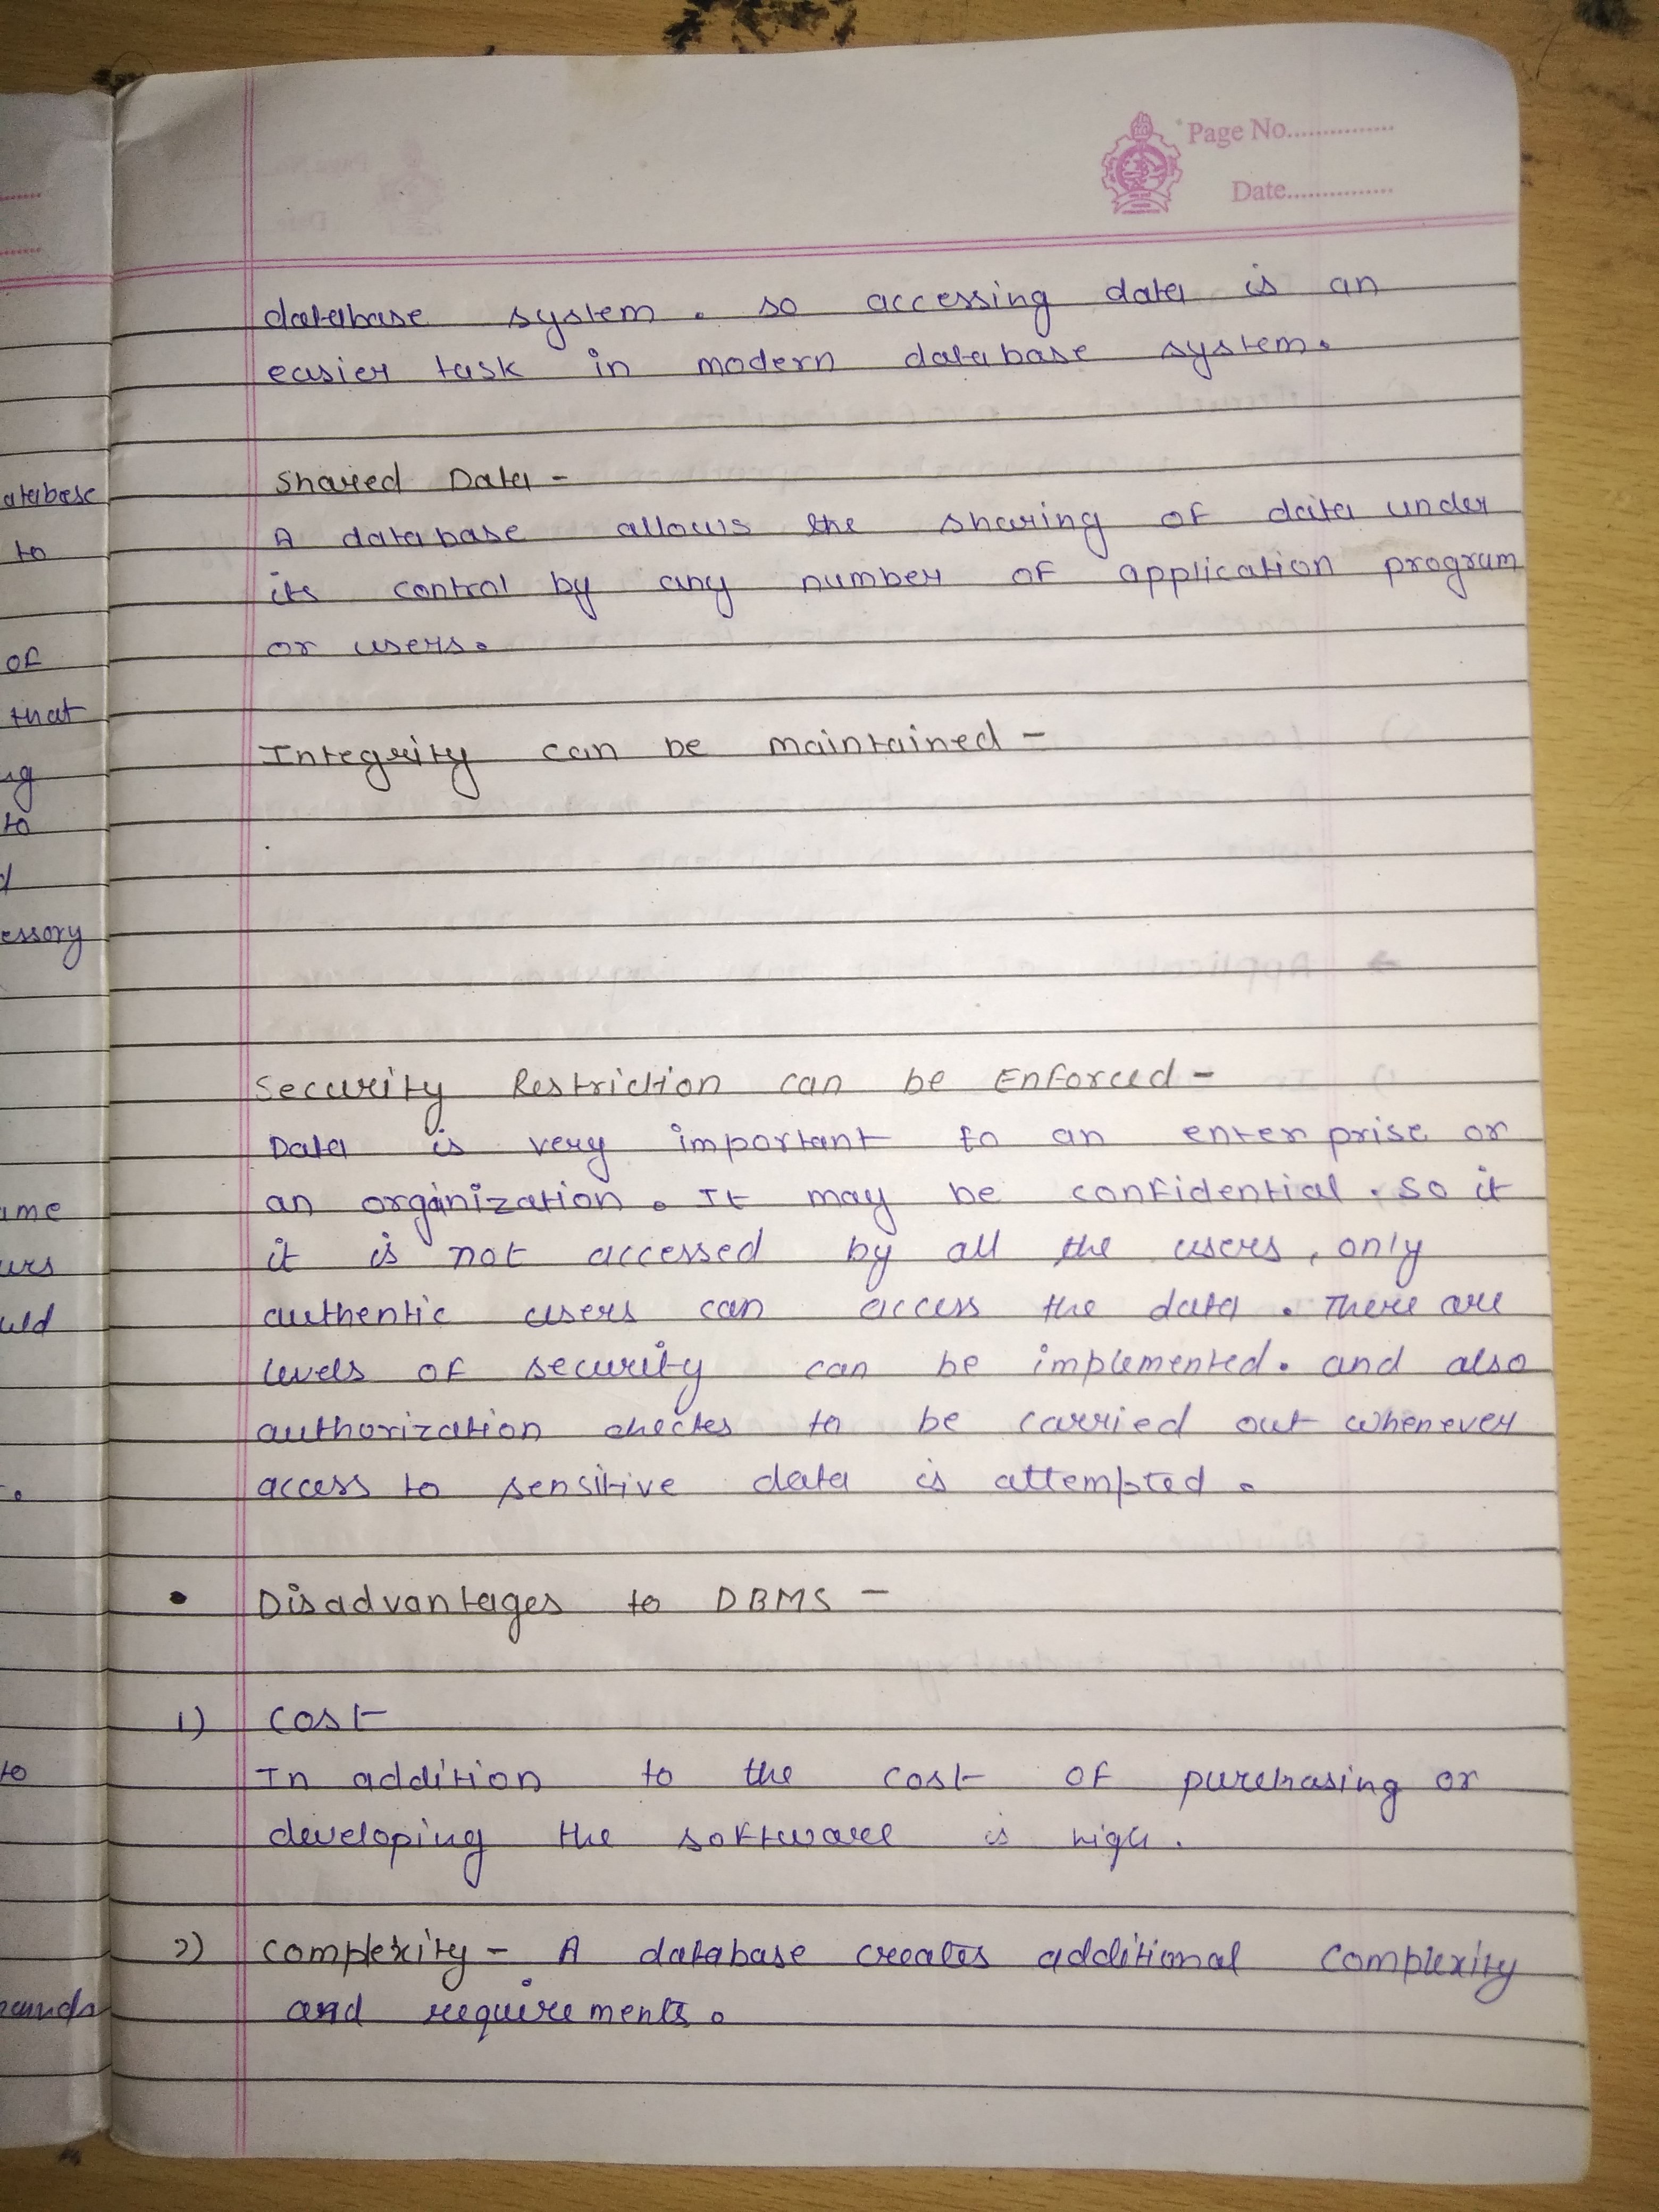 Page No...............
Date...............
database system. so accessing data is an
easier task in modern database system.
Shared Data -
A database allows the sharing of data under
its control by any number of application program
or users.
Integrity can be maintained -
Security Restriction can be Enforced -
Data is very important to an enterprise or
an organization. It may be confidential. so it
it is not accessed by all the users, only
authentic users can access the data. There are
levels of security can be implemented. and also
authorization checks to be carried out whenever
access to sensitive data is attempted.
• Disadvantages to DBMS -
1) cost
In addition to the cost of purchasing or
developing the software is high.
2) complexity - A database creates additional complexity
and requirements.
atabase
to
of
that
ng
to
d
essory
ume
urs
uld
to